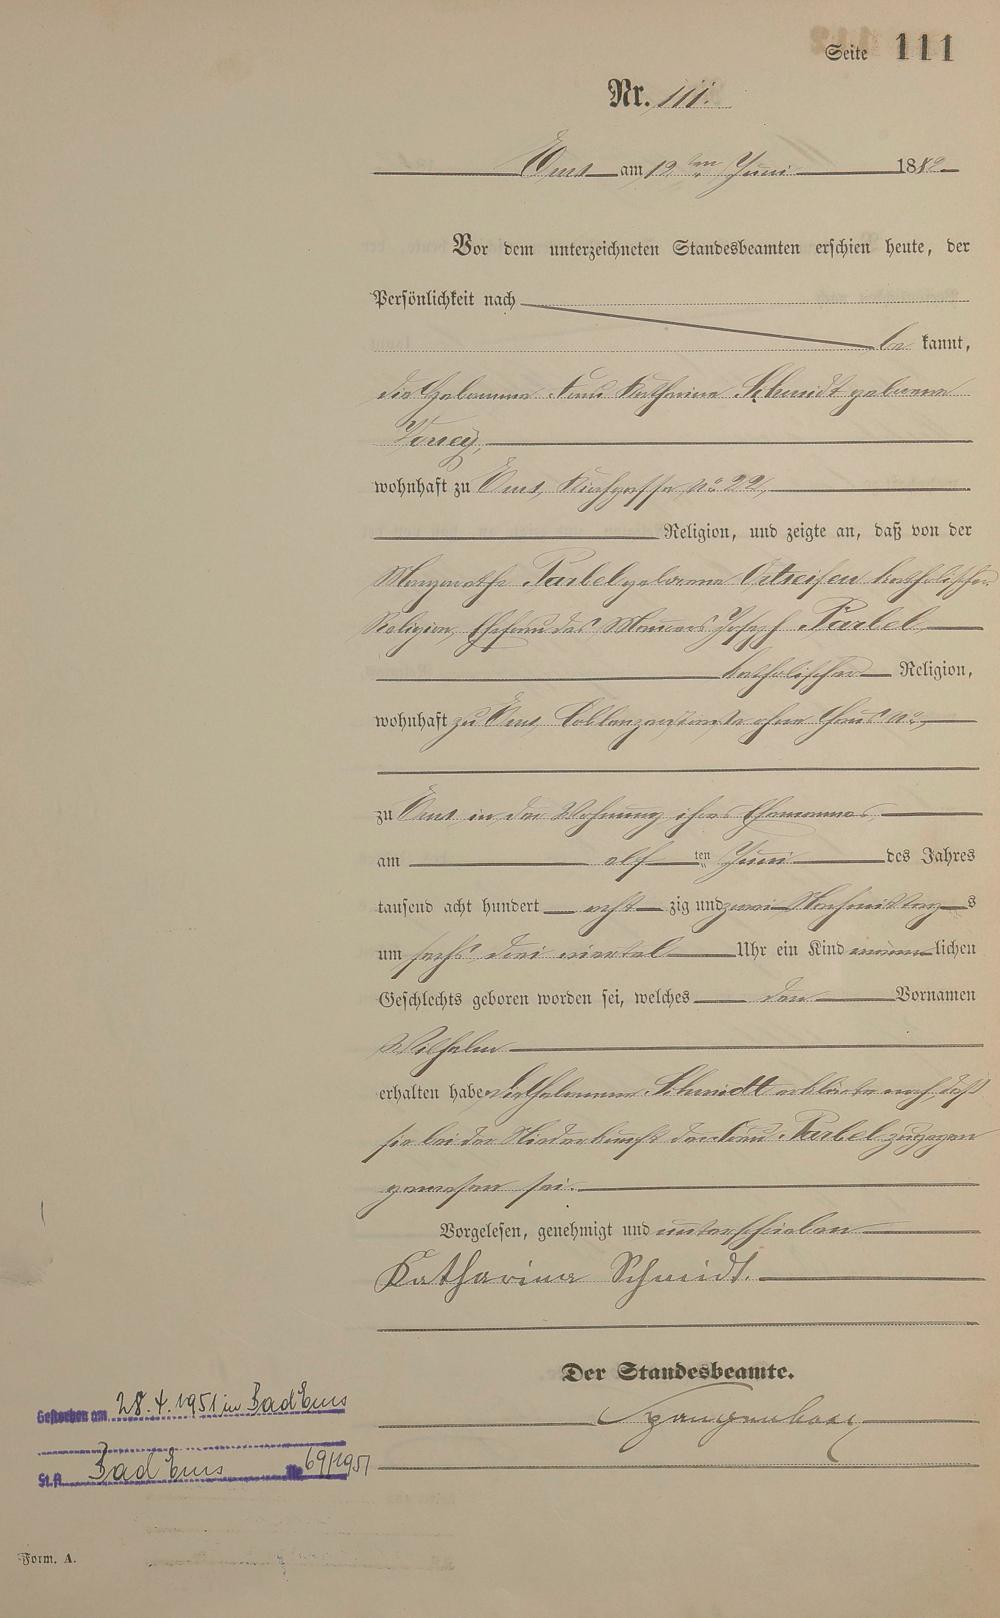 Seite 111
Nr. 111.
Ems am 12 ten Juni 1882
Vor dem unterzeichneten Standesbeamten erschien heute, der
Persönlichkeit nach
be kannt,
die Hebamme Frau Katharina Schmidt geborene
wohnhaft zu Ems, Kirchgasse No 22,
Religion, und zeigte an, daß von der
Margarethe Parbel geborene Ortseifen katholischer
Religion, Ehefrau des Maurers Joseph Parbel
katholischer Religion,
wohnhaft zu Ems, Coblenzerstraße ohne Haus No,
zu Ems in der Wohnung ihres Ehemannes,
am elf ten Juni des Jahres
tausend acht hundert acht zig und zwei Nachmittags
um sechs drei viertel Uhr ein Kind männlichen
Geschlechts geboren worden sei, welches den Vornamen
Wilhelm
erhalten habe. Die Hebamme Schmidt erklärte noch, daß
sie bei der Niederkunft der Frau Parbel zugegen
gewesen sei.
Vorgelesen, genehmigt und unterschrieben
Katharina Schmidt.
Der Standesbeamte.
Spangenberg
Gestorben am 28.4.1951 in Bad Ems
St.A. Bad Ems Nr 69/1951
Form. A.